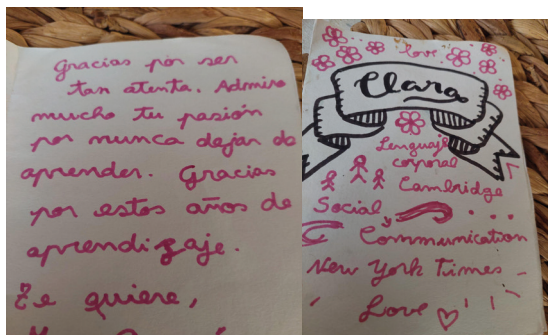 Gracias por ser
tan atenta. Admiro
mucho tu pasión
por nunca dejar de
aprender. Gracias
por estos años de
aprendizaje.
Te quiere,
love
Clara
Lenguaje
corporal
Cambridge
Social
Communication
New York Times
Love